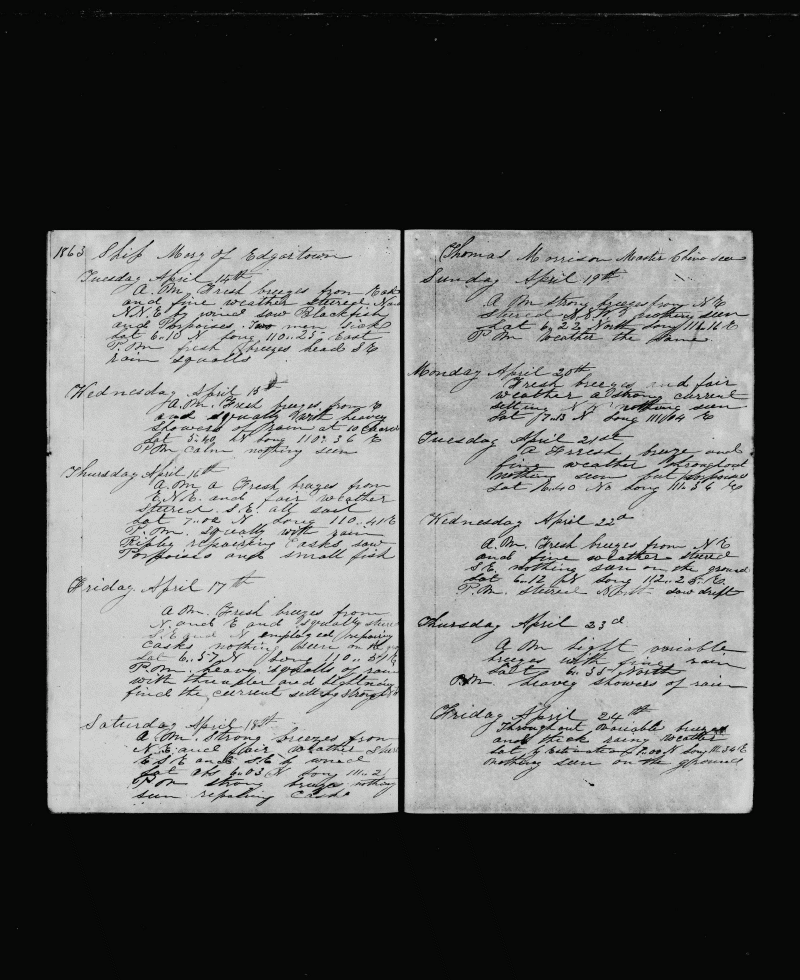 1863 Ship Mary of Edgartown
Tuesday April 14th
A.M. Fresh breezes from East
and fine weather stered
N.N.E by wind saw Blackfish
and Porpoises. Two men sick
Lat 6.10 N Long 110..25 East
P.M fresh breezes head S E
rain squalls
Wednesday April 15th
A.M. Fresh breezes from E
and squally with heavey
showers of rain at 10
Lat 5.40 N Long 110.. 36 E
P.M calm nothing seen
Thursday April 16th
A.M. a Fresh breezes from
E.N.E. and fair weather
stered S.E. all sail
Lat 7.02 N Long 110..41 E
P.M. Squally with rain
repairing casks saw
Porpoises and small fish
Friday April 17th
A.M. Fresh breezes from
N. and E and squally stered
S.E and N employed repairing
casks nothing seen on the
Lat 6..57 N Long 110..
P.M. heavey squalls of rain
with thunder and lightning
find the current setting strong
Saturday April 18th
A.M. Strong breezes from
N.E and fair weather
E S E and S.E by wind
Lat obs 6.03 N Long 111..2
P.M strong breeze nothing
seen repairing casks
Thomas Morrison Master China Sea
Sunday April 19th
A.M strong breezes from N E
stered nothing seen
Lat 6.22 North Long 111.11 E
P M weather the same
Monday April 20th
Fresh breezes and fair
weather a strong current
setting nothing seen
Lat 7.13 N Long 111/04 E
Tuesday April 21st
A Frresh breeze and
fine weather throughout
nothing seen but porpoises
Lat 6.40 No Long 111.34
Wednesday April 22d
A.M. Fresh breezes from N.E
and fine weather stered
S.E. nothing seen on the ground
Lat 6.12 N Long 112..25. E
P.M. stered North saw drift
Thursday April 23d
A M light variable
breezes with fine rain
Lat 6.35 North
P.M. heavey showers of rain
Friday April 24th
Throughout variable breezes
and thick rainy weather
Lat by Estimation 7.00 N Long 111.34 E
nothing seen on the ground